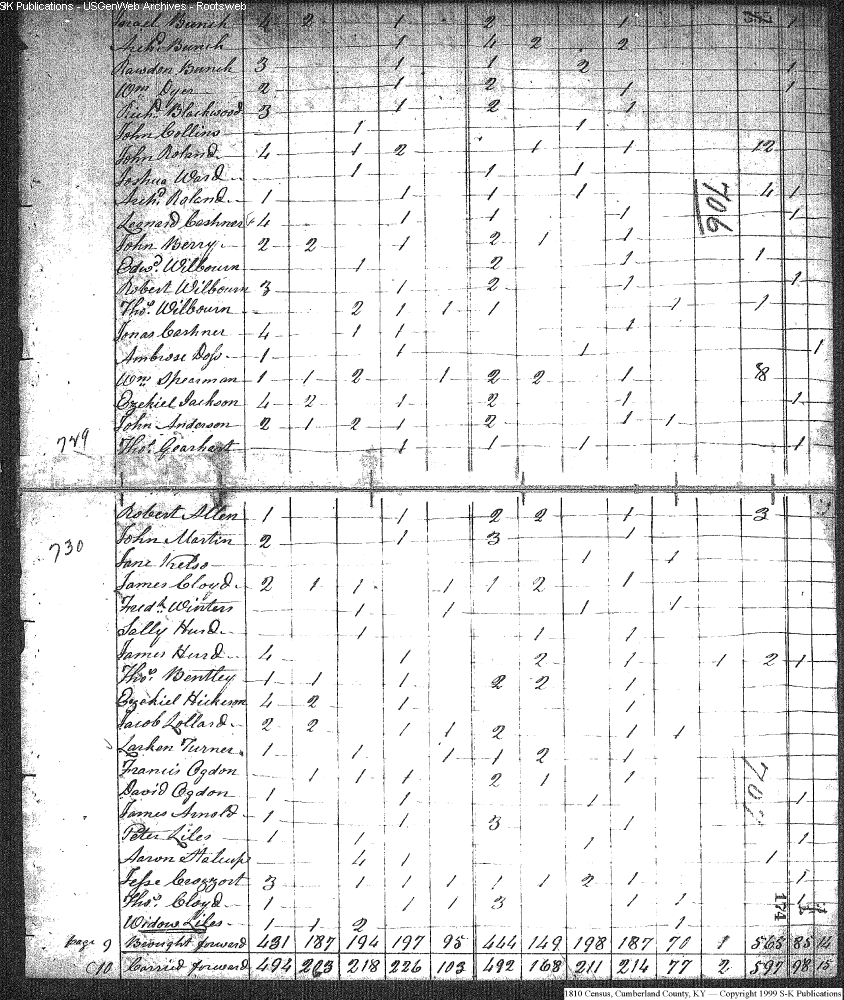 S-K Publications - USGenWeb Archives - Rootsweb
Israel Bunch 4 2 1 2 1 1
Archd. Bunch 1 4 2 2
Rawden Bunch 3 1 1 2 1
Wm Dyer 2 1 2 1 1
Richd. Blackwood 3 1 2 1
John Collins 1 1
John Roland 4 1 2 1 1 12
Joshua Ward 1 1 1
Archd. Roland 1 1 1 1 4 1
706
Leonard Cashner 4 1 1 1 1
John Berry 2 2 1 2 1 1
Edwd. Wilbourn 1 2 1 1
Robert Wilbourn 3 1 2 1 1
Thos. Wilbourn 2 1 1 1 1 1
Jonas Cashner 4 1 1 1
Ambrose Doss 1 1 1 1
Wm Spearman 1 1 2 1 2 2 1 8
Ezekiel Jackson 4 2 1 2 1 1
John Anderson 2 1 2 1 2 1 1
749
Thos. Gearhart 1 1 1 1
Robert Allen 1 1 2 2 1 3
John Martin 2 1 3 1
730
Jane Kelso 1 1
James Cloyd 2 1 1 1 1 2 1
Fredk. Winters 1 1 1 1
Sally Hurd 1 1 1
James Hurd 4 1 2 1 1 2 1
Thos. Bentley 1 1 1 2 2 1
Ezekiel Hickerson 4 2 1 1
Jacob Lollard 2 2 1 1 2 1 1
Larken Turner 1 1 1 1 2 1
Francis Ogdon 1 1 1 2 1 1
707
David Ogdon 1 1 1 1
James Arnold 1 1 3 1
Peter Liles 1 1 1 1
Aaron Stalcup 4 1 1
Jesse Crozzort 3 1 1 1 1 1 2 1 1
Thos. Cloyd 1 1 1 3 1 1
174
Widow Liles 1 1 2 1
Page 9 Brought forward 431 187 194 197 95 444 149 198 187 70 1 565 85 14
10 Carried forward 494 203 218 226 103 492 168 211 214 77 2 597 98 15
1810 Census, Cumberland County, KY — Copyright 1999 S-K Publications